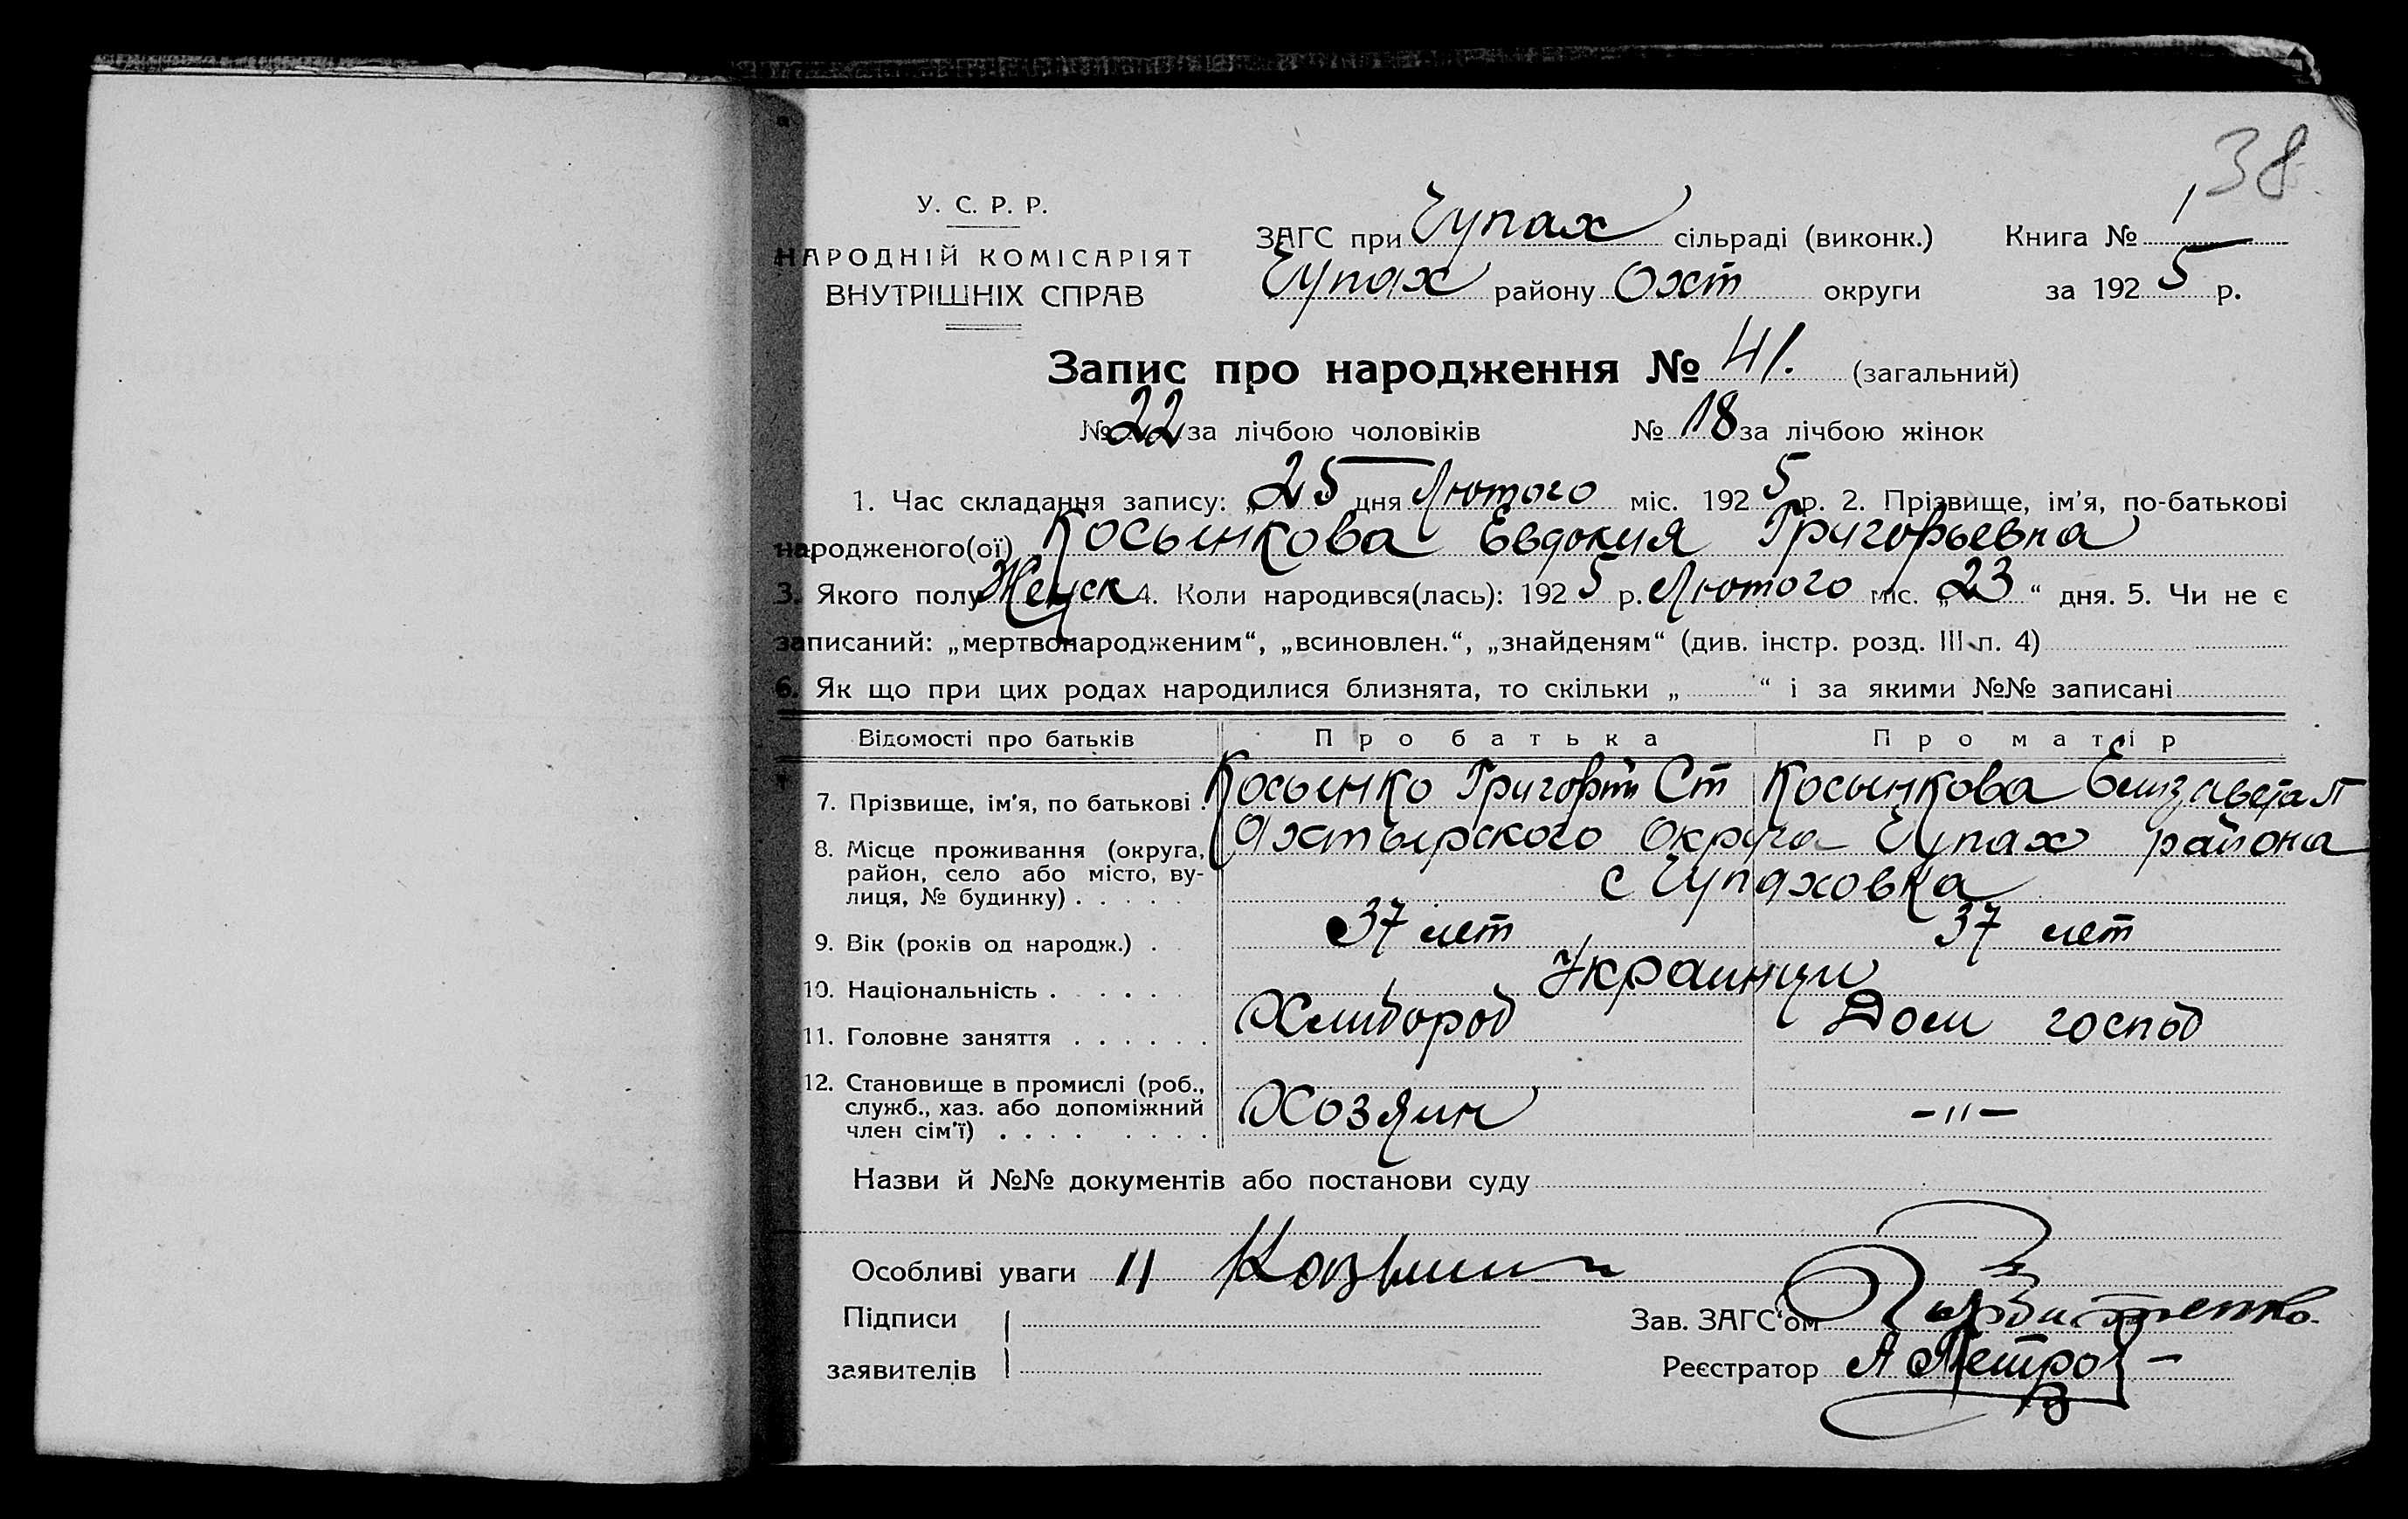 38
У. С. Р. Р.
НАРОДНІЙ КОМІСАРІЯТ
ВНУТРІШНІХ СПРАВ
ЗАГС при Чупах сільраді (виконк.) Книга № 1
Чупах району Охт округи за 1925 р.
Запис про народження № 41. (загальний)
№ 22 за лічбою чоловіків № 18 за лічбою жінок
1. Час складання запису: „25 дня Лютого міс. 1925 р. 2. Прізвище, ім'я, по-батькові
народженого(ої) Косынкова Евдокия Григорьевна
3. Якого полу Женск 4. Коли народився(лась): 1925 р. Лютого міс. „23“ дня. 5. Чи не є
записаний: „мертвонародженим“, „всиновлен.“, „знайденям“ (див. інстр. розд. III п. 4)
6. Як що при цих родах народилися близнята, то скільки „ “ і за якими №№ записані
Відомості про батьків Про батька Про матір
7. Прізвище, ім'я, по батькові . Косынко Григорий Ст Косынкова Елизавета П
8. Місце проживання (округа, Ахтырского Округа Чупах района
район, село або місто, ву-
лиця, № будинку) . . . . . с Чупаховка
9. Вік (років од народж.) . 37 лет 37 лет
10. Національність . . . . . . Украинци
11. Головне заняття . . . . . . Хлибороб Дом господ
12. Становище в промислі (роб.,
служб., хаз. або допоміжний Хозяин –"–
член сім'ї) . . . . . . . .
Назви й №№ документів або постанови суду
Особливі уваги
Підписи Зав. ЗАГС'ом
заявителів Реєстратор А Петров